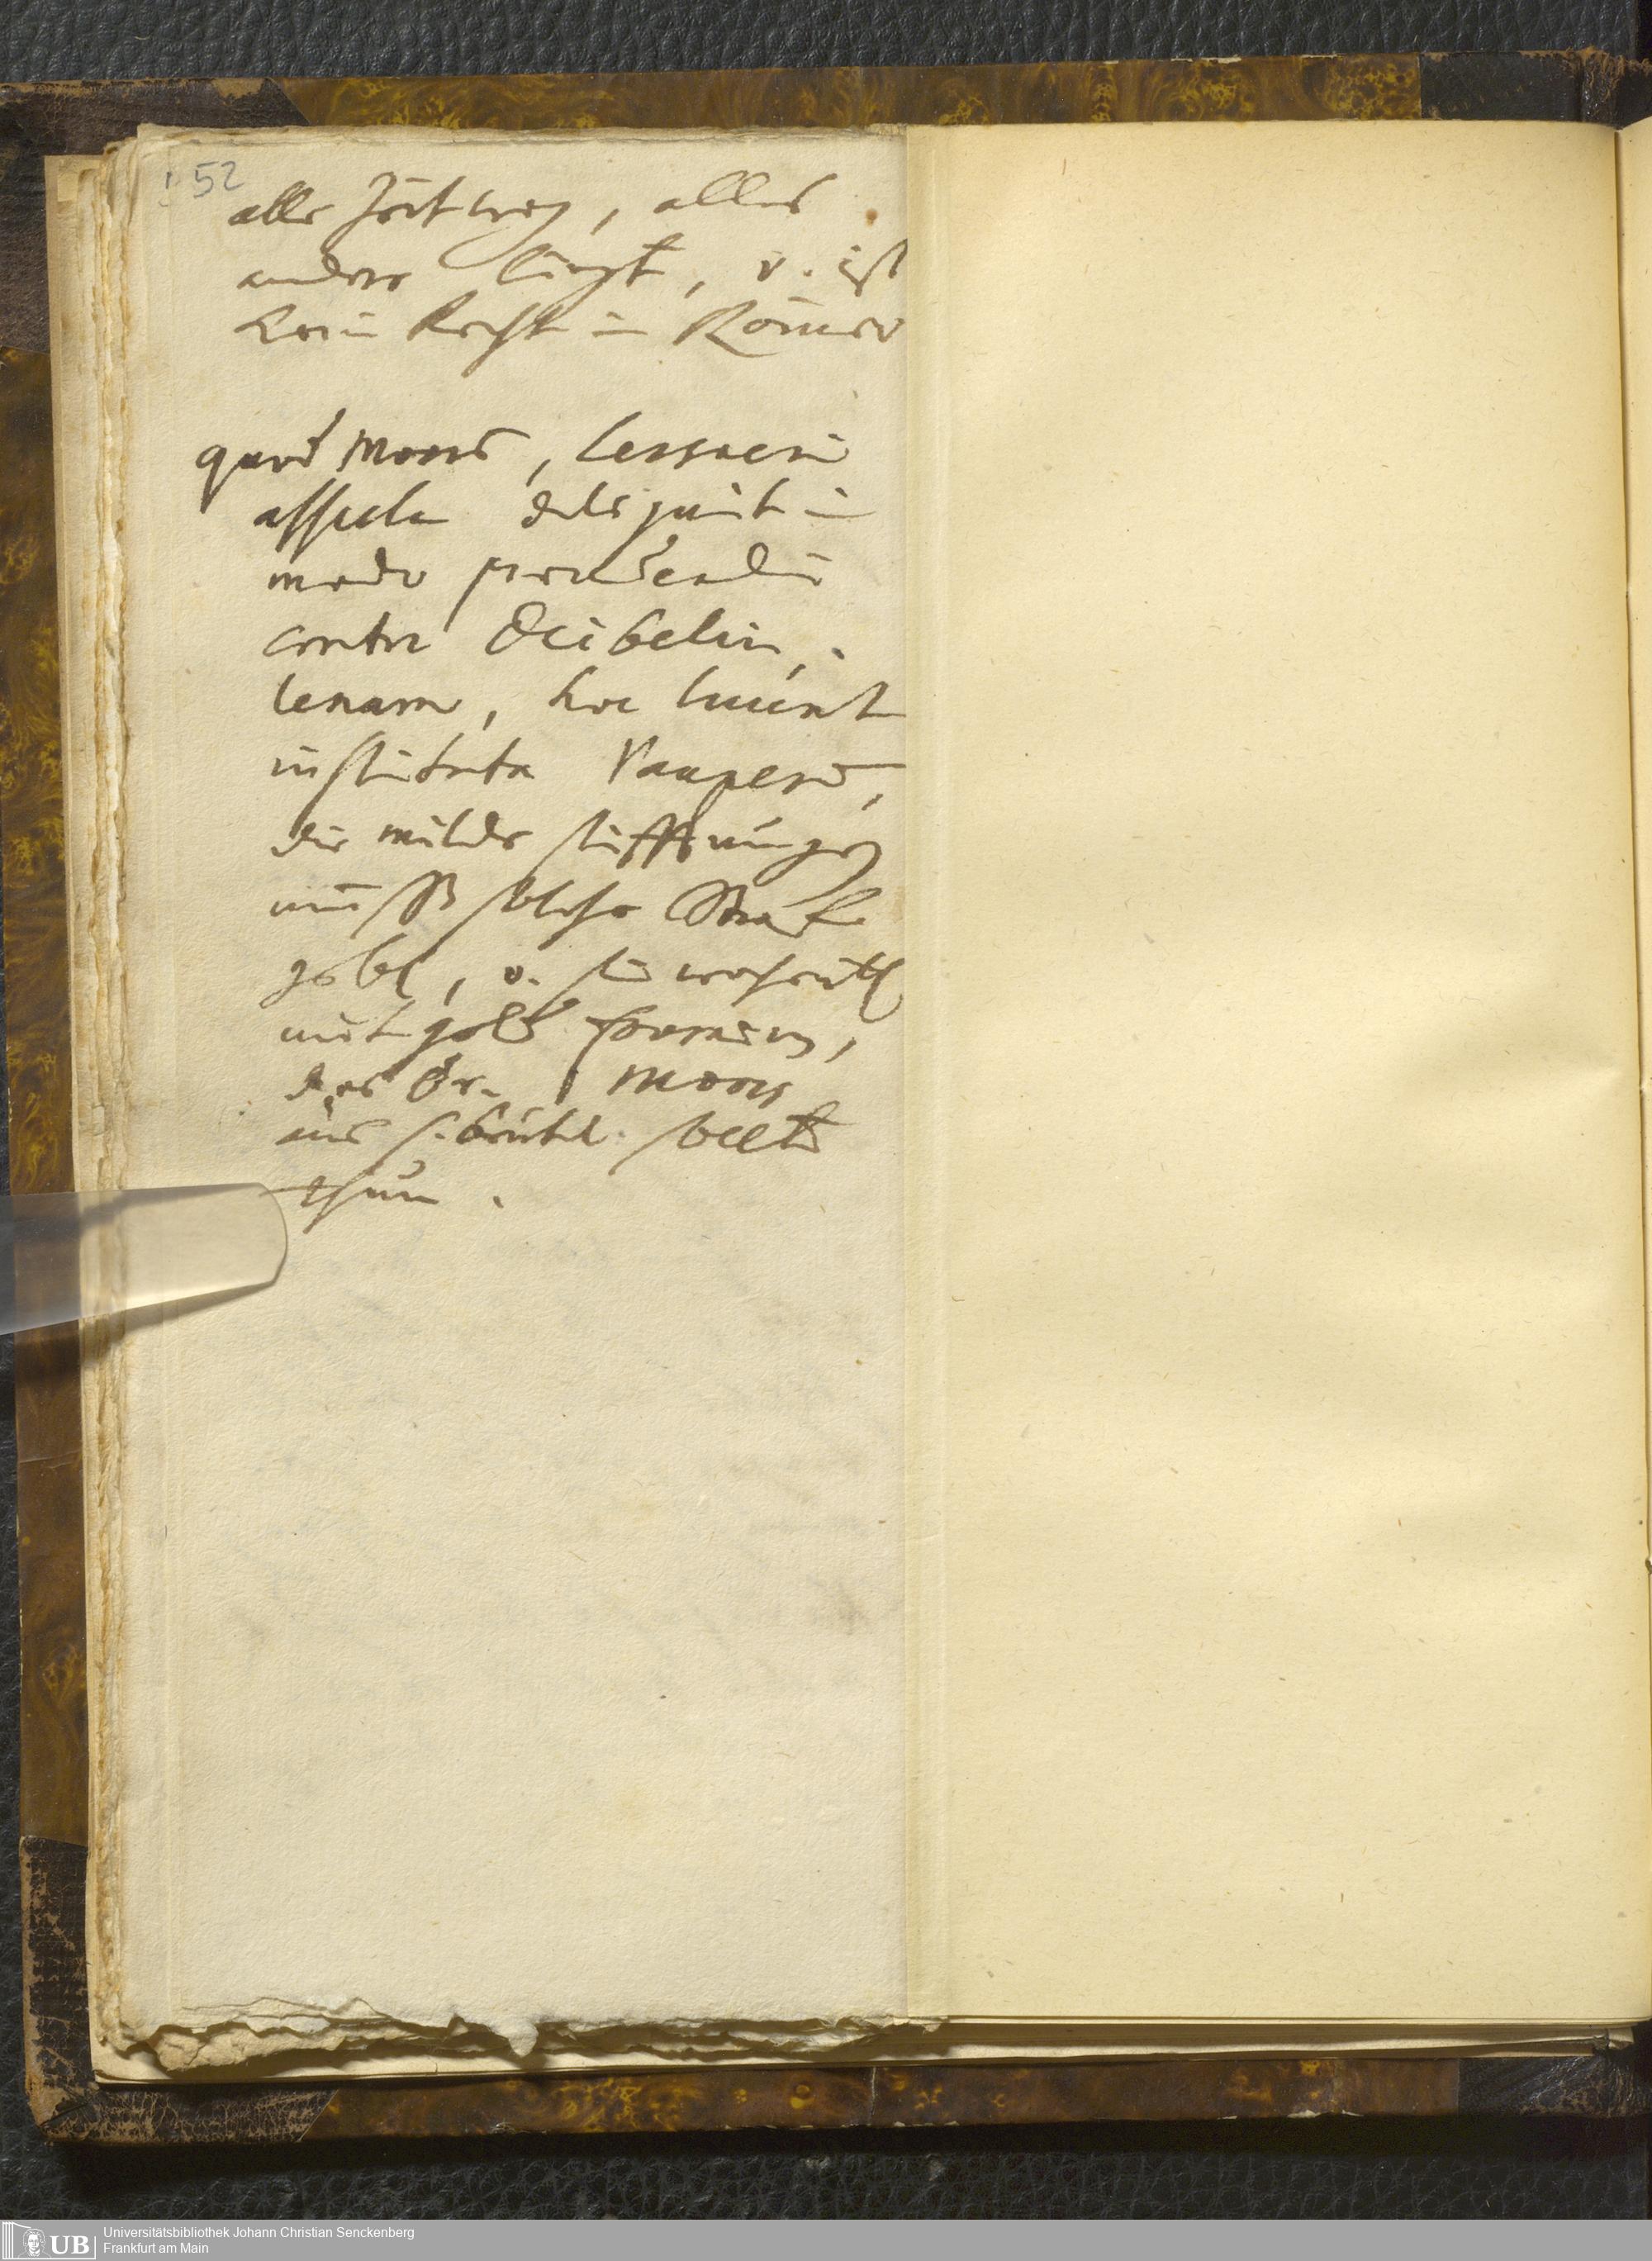 52
alle Zeit weg, alles
andere liegt, v. ist
kein Recht in Römer
quod Moors,
assecla deliquit in
modo procedendi
contra Deibelin,
lenam, hoc luunt
instituta Pauperum,
die milde stifftungen
muß solche Straffe
geben, v. sie
mit geld,
das Dr. Moors
aus s. beutel sollte
thun.
UB
Universitätsbibliothek Johann Christian Senckenberg
Frankfurt am Main